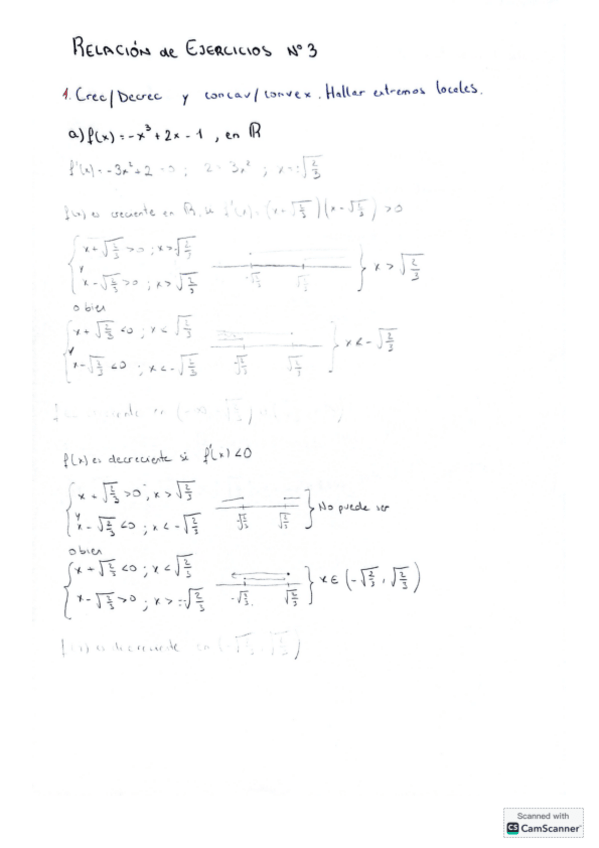 RELACIÓN de EJERCICIOS Nº 3
1. Crec/Decrec y concav/convex. Hallar extremos locales.
a) f(x) = -x³ + 2x - 1 , en ℝ
f'(x) = -3x² + 2 = 0 ; 2 = 3x² ; x = √2/3
f(x) es creciente en ℝ, si f'(x) (x+√2/3)(x-√2/3) > 0
{ x+√2/3 >0 ; x>√2/3
y
x-√2/3 >0 ; x>√2/3 -√2/3 √2/3 } x > √2/3
o bien
{ x+√2/3 <0 ; x<√2/3
y
x-√2/3 <0 ; x<-√2/3 √2/3 √2/3 } x<-√2/3
f(x) es decreciente si f'(x) <0
{ x+√2/3 >0 ; x>√2/3
y
x-√2/3 <0 ; x<-√2/3 √2/3 √2/3 } No puede ser
o bien
{ x+√2/3 <0 ; x<√2/3
x-√2/3 >0 ; x>-√2/3 -√2/3 √2/3 } x∈ (-√2/3 , √2/3)
f(x) es decreciente en (-√2/3 , √2/3)
Scanned with
CS CamScanner